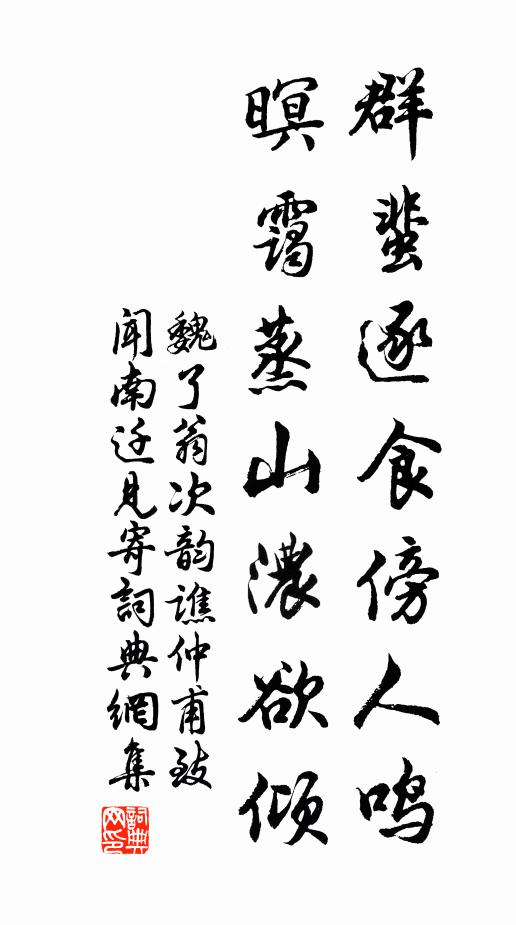 群蜚逐食傍人鸣
暝霭蒸山浓欲倾
魏了翁次韵谯仲甫致
闻南迁见寄词典网集
词典网印